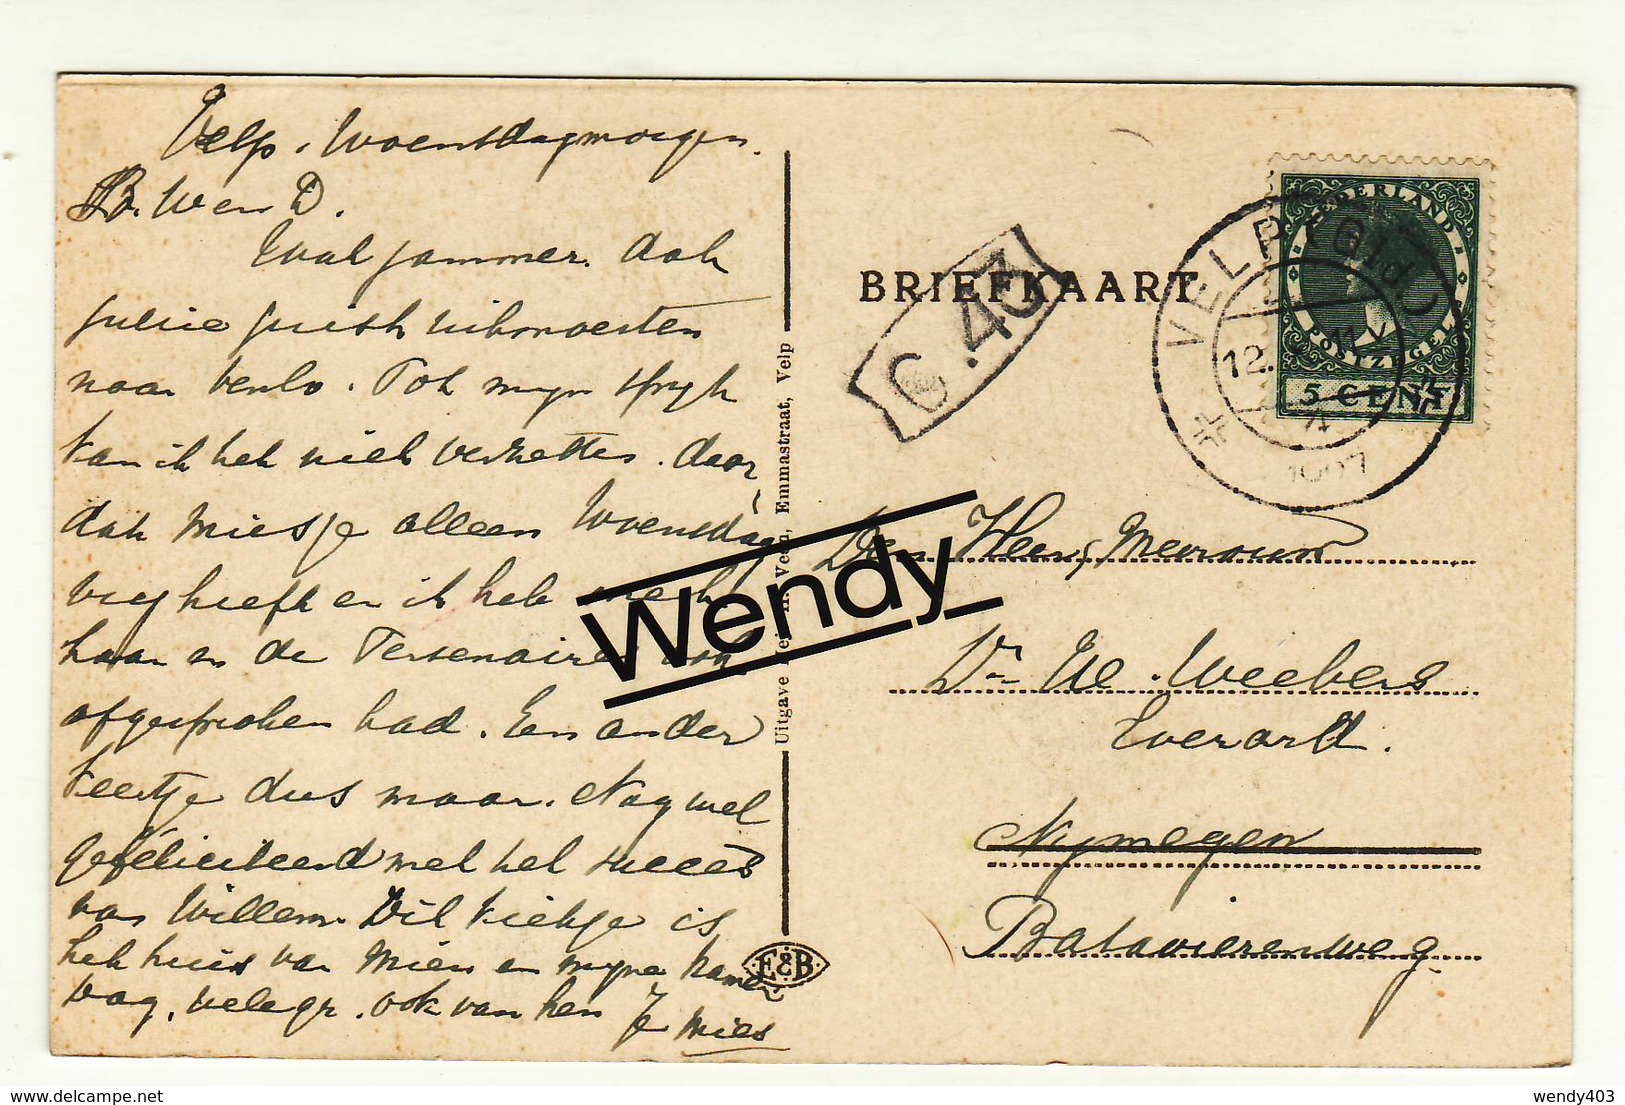 Velp, Woensdagmorgen.
B. W en D.
Wat jammer. dat
jullie juist uitmoesten
naar Venlo. Tot myn spyt
kan ik het niet verzetten. daar
dat Miesje alleen Woensdag
vry heeft en ik het
haar en de
afgesproken had. Een ander
keertje dus maar. Nog wel
gefeliciteerd met het succes
van Willem. Dit kiekje is
het huis van Mien en myne kamer
Dag, vele gr. ook van hen Je Mies
Uitgave
Veen, Emmastraat, Velp
E&B
BRIEFKAART
G.43
NEDERLAND
POSTZEGEL
5 CENT
VELP (Gld)
12.
Den Heer, Mevrouw
Dr W. Weebers
Everard.
Nymegen
Batavierenweg
Wendy
delcampe.net
wendy403